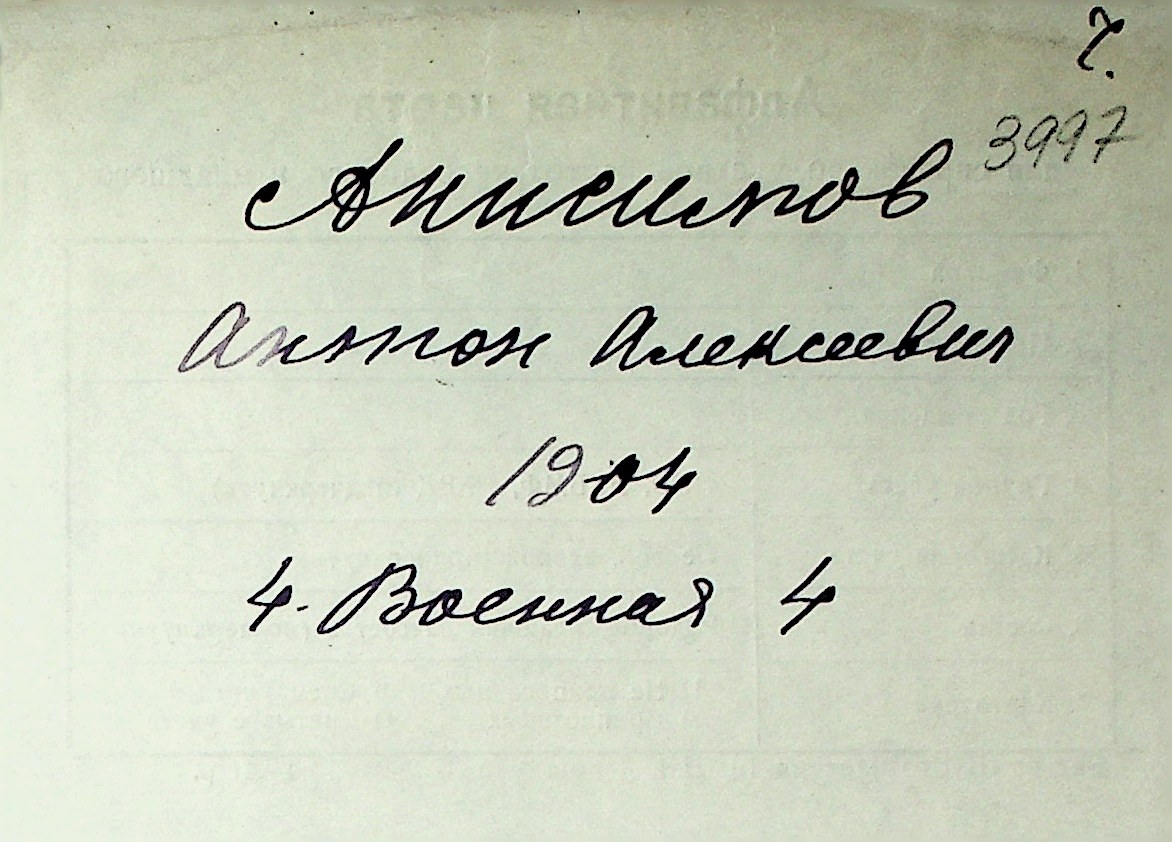 Ч.
3997
Анисимов
Антон Алексеевич
1904
4. Военная 4